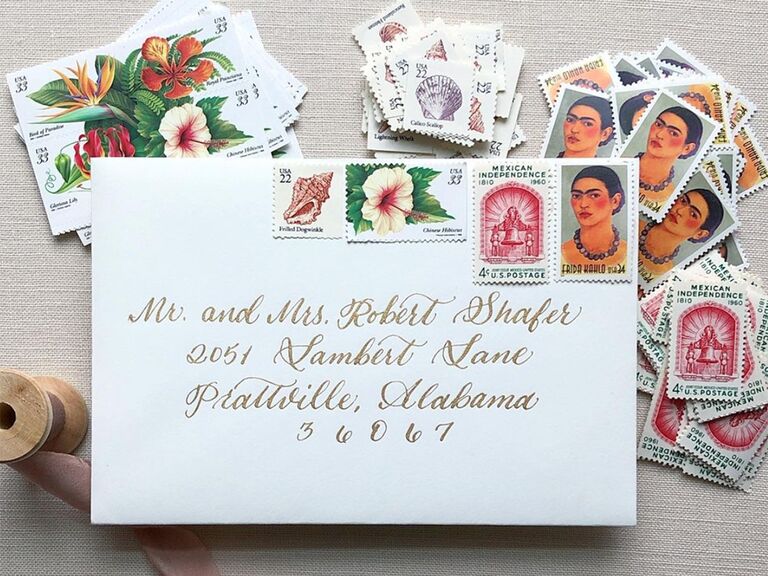 USA
33
Royal Poinciana
Bird of Paradise
33
33
Gloriosa Lily
Chinese Hibiscus
USA
22
Calico Scallop
Lightning Whelk
USA
22
Frilled Dogwinkle
USA
33
Chinese Hibiscus
MEXICAN
INDEPENDENCE
1810 1960
4¢
U.S. POSTAGE
FRIDA KAHLO USA 34
Mr. and Mrs. Robert Shafer
2051 Lambert Lane
Prattville, Alabama
36067
MEXICAN
INDEPENDENCE
1810 1960
4¢
U.S. POSTAGE
MEXICAN